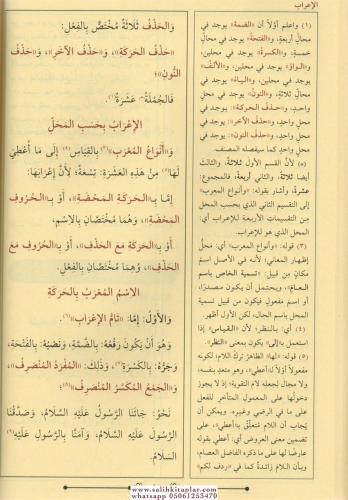 الإعراب
وَالحَذْفُ ثَلَاثَةٌ مُخْتَصٌّ بِالفِعْلِ:
«حَذْفُ الحَرَكَةِ»، وَ«حَذْفُ الآخَرِ»، وَ«حَذْفُ
النُّونِ»؛
فَالجُمْلَةُ عَشَرَةٌ(١).
الإِعْرَابُ بِحَسَبِ المَحَلِّ
وَ«أَنْوَاعُ المُعْرَبِ»(٣) بِالقِيَاسِ(٤) إِلَى مَا أُعْطِيَ
لَهَا(٥) مِنْ هَذِهِ العَشَرَةِ: تِسْعَةٌ؛ لِأَنَّ إِعْرَابَهَا:
إِمَّا بِـ«الحَرَكَةِ المَحْضَةِ»، أَوْ بِـ«الحُرُوفِ
المَحْضَةِ»، وَهُمَا مُخْتَصَّانِ بِالِاسْمِ،
أَوْ بِـ«الحَرَكَةِ مَعَ الحَذْفِ»، أَوْ بِـ«الحُرُوفِ مَعَ
الحَذْفِ»، وَهُمَا مُخْتَصَّانِ بِالفِعْلِ.
الِاسْمُ المُعْرَبُ بِالحَرَكَةِ
وَالأَوَّلُ: إِمَّا: «تَامُّ الإِعْرَابِ»(٦).
وَهُوَ أَنْ يَكُونَ رَفْعُهُ: بِالضَّمَّةِ، وَنَصْبُهُ: بِالفَتْحَةِ،
وَجَرُّهُ: بِالكَسْرَةِ(٧)، وَذَلِكَ: «المُفْرَدُ المُنْصَرِفُ»،
وَ«الجَمْعُ المُكَسَّرُ المُنْصَرِفُ»(٨)؛
نَحْوُ: جَاءَنَا الرَّسُولُ عَلَيْهِ السَّلَامُ، وَصَدَّقْنَا
الرَّسُولَ عَلَيْهِ السَّلَامُ، وَآمَنَّا بِالرَّسُولِ عَلَيْهِ
السَّلَامُ،
(١) واعلم أولاً أن «الضمة» يوجد في
محالّ أربعةٍ، و«الفتحة» يوجد في محالّ
خمسةٍ، و«الكسرة» يوجد في محلين،
و«الواو» يوجد في محلين، و«الألف»
يوجد في محلين، و«الياء» يوجد في
محالّ ثلاثةٍ، و«النون» يوجد في محلٍ
واحدٍ، و«حذف الحركة» يوجد في
محلٍ واحدٍ، و«حذف النون» يوجد في
محلٍ واحدٍ كما سيفصله المصنف.
أيضا ثلاثة، والثاني أربعة، فالمجموع:
عشرة، وأشار بقوله: «وأنواع المعرب»
إلى التقسيم الثاني الذي بحسب المحل
من التقسيمات الأربعة للإعراب أي:
المحل الذي هو للإعراب.
(٣) قوله: «وأنواع المعرب» أي: محلُّ
إظهار المعاني؛ لأنه في الأصل اسمُ
مكانٍ من قبيل: «تسمية الخاص باسم
العام»، ويحتمل أن يكون مصدرًا،
أو اسم مفعولٍ فيكون من قبيل تسمية
المحل باسم الحال، لكن الأول أظهر.
(٤) أي: بالنظر؛ لأن «القياس» إذا
استعمل بـ«إلى» يكون بمعنى «النظر».
(٥) قوله: «لها» الظاهرُ تركُ اللام؛ لكونه
مفعولاً أوّلاً لـ«أعطي»، وهو متعدٍّ بنفسه،
ولا مجال لجعله لام التقوية؛ إذ لا يجوز
دخولها على المعمول المتأخر للفعل
على ما في الرضي وغيره. ويمكن أن
يُجاب أن اللام مُتعلِّقٌ بـ«أعطي»، على
تضمين معنى العروض أي: أعطي بقوله
عارضًا لها على ما ذكره الفاضل العصام،
وبأن اللام زائدةٌ كما في «ردف لكم»
www.salihkitaplar.com
whatsapp 05061253470